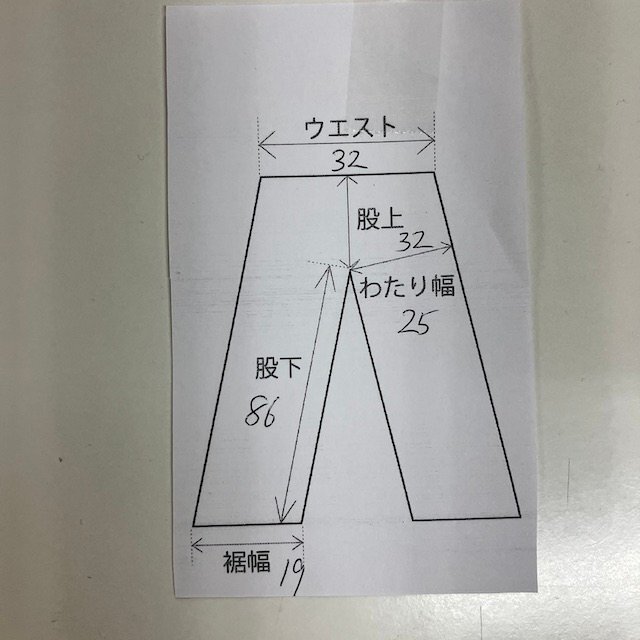 ウエスト
32
股上
32
わたり幅
25
股下
86
裾幅
19